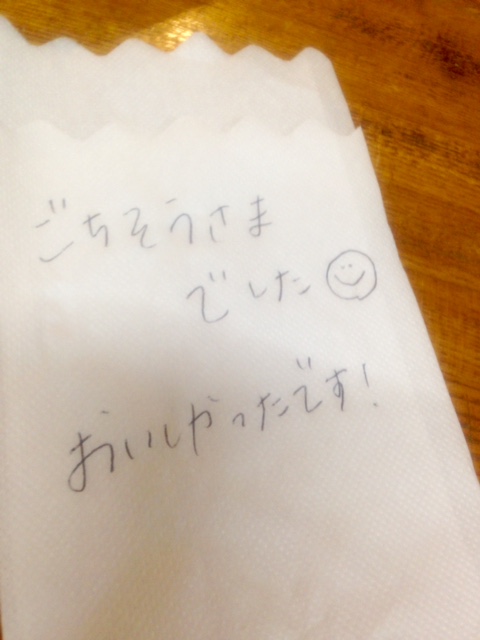 ごちそうさま
でした
おいしかったです!